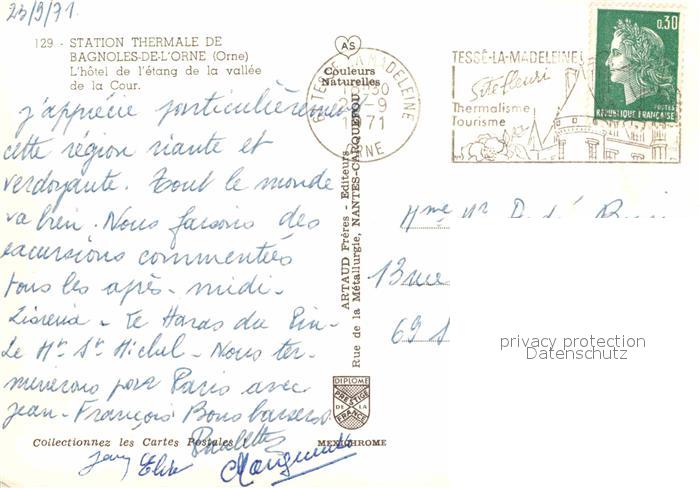 23/9/71.
129 - STATION THERMALE DE
BAGNOLES-DE-L'ORNE (Orne)
L'hôtel de l'étang de la vallée
de la Cour.
j'apprécie particulièrement
cette région riante et
verdoyante. Tout le monde
va bien. Nous faisons des
excursions commentées
tous les après-midi-
Lisieux - Le Haras du Pin-
Le Mt St Michel - Nous ter-
minerons par Paris avec
Jean-François Bons baisers
Paulette
Elise Marguerite
Collectionnez les Cartes Postales
AS
Couleurs
Naturelles
ARTAUD Frères - Editeurs
Rue de la Métallurgie, NANTES-CARQUEFOU
DIPLOME
PRESTIGE
DE LA
FRANCE
MEXICHROME
TESSE-LA-MADELEINE
23-9
1971
ORNE
TESSÉ-LA-MADELEINE
Site fleuri
Thermalisme
Tourisme
0,30
POSTES
REPUBLIQUE FRANÇAISE
Mme Mr
13 rue
69
privacy protection
Datenschutz